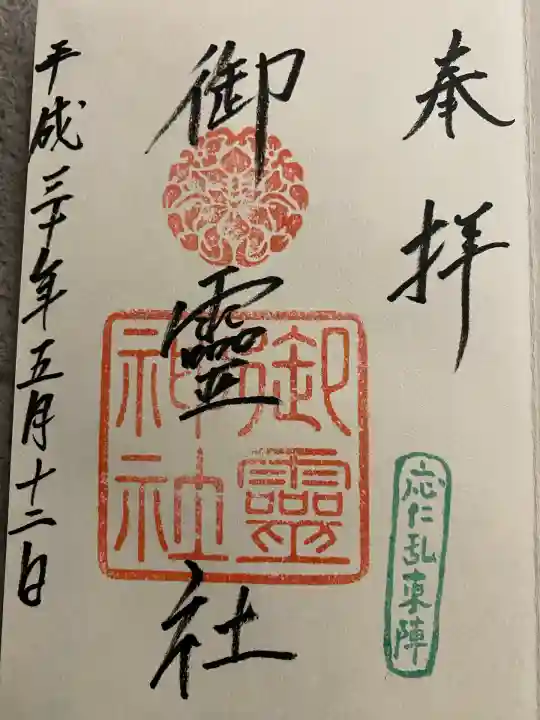 奉拝
応仁乱東陣
御霊社
御靈神社
平成三十年五月十二日